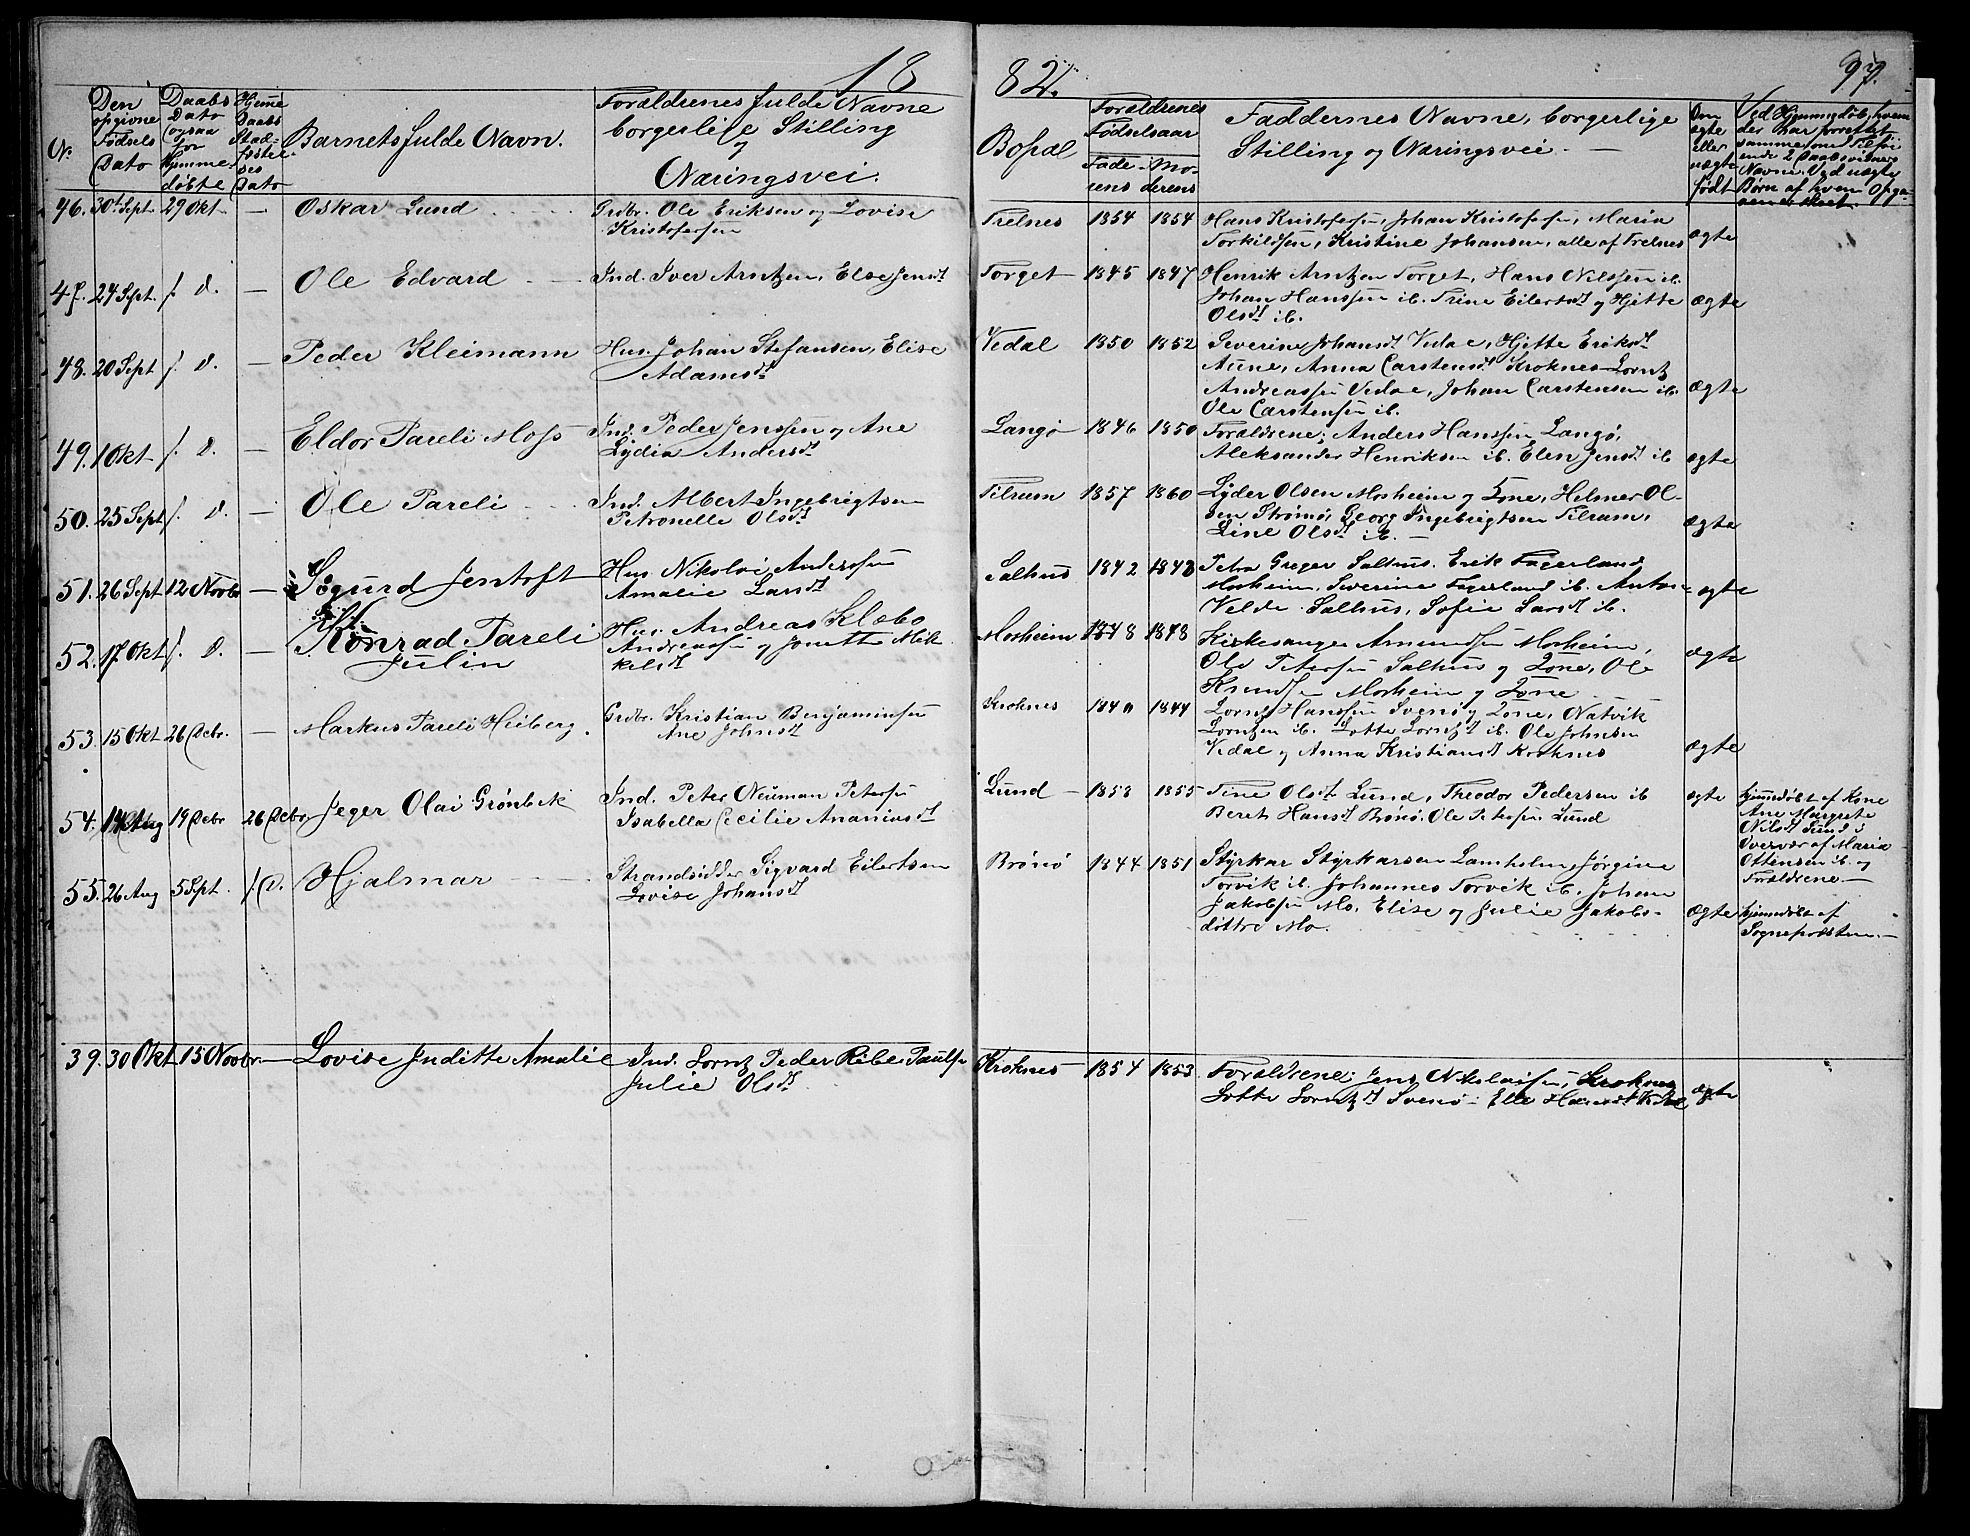 18 82. 97.
Nr. Den opgivne Fødsels Dato
Daabs Dato ogsaa for Hjemmedøbte
Hjemme Daabs Stadfæstelses Dato
Barnets fulde Navn.
Forældrenes fulde Navne borgerlige Stilling og Næringsvei.
Bopæl
Forældrenes Fødselsaar
Faderens Moderens
Faddernes Navne, borgerlige Stilling og Næringsvei. —
Om ægte eller uægte født
Ved Hjemmedøb, hvem der har forrettet samme
46. 30te Sept. 29 Okt — Oskar Lund Grdbr. Ole Eriksen og Lovise Kristofersen Trelnes 1854 1854 Hans Kristofersen, Johan Kristofersen, Maria Torkildsen, Kristine Johansen, alle af Trelnes ægte
47. 24 Sept. s. D. — Ole Edvard Ind. Iver Arntzen, Else Jensdt Torget 1845 1847 Henrik Arntzen Torget, Hans Nilssen ib. Johan Hanssen ib. Trine Eilertsdt og Hjitte Olsdt ib. ægte
48. 20 Sept s. D. — Peder Kleimann Hus. Johan Stefansen, Elise Adamsdt Vedal 1850 1852 Severine Johansdt Vedal, Hjitte Eriksdt Aune, Anna Carstensdt Kroknes Lorntz Andreassen Vedal, Johan Carstensen ib. Ole Carstensen ib. ægte
49. 1 Okt s. D. — Eldor Pareli Moss Ind. Peder Jenssen og Ane Lydia Andersdt Langø 1846 1850 Forældrene; Anders Hanssen Langø, Aleksander Henriksen ib. Elen Jensdt ib ægte
50. 25 Sept s. D. — Ole Pareli Ind. Albert Ingebrigtsen Petronelle Olsdt Tilrum 1857 1860 Lyder Olsen Mosheim og Kone, Helmer Olsen Strømø, Georg Ingebrigtsen Tilrum, Line Olsdt ib. — ægte
51. 26 Sept 12 Novbr — Sigurd Jentoft Hus Nikolai Andersen Amalie Larsdt Salhus 1842 1843 Petra Greger Salhus. Erik Fagerland Mosheim, Severine Fagerland ib. Anton Velde Salhus, Sofie Larsdt ib. ægte
52. 17 Okt s. D. — Konrad Pareli Julin Hus. Andreas Klæbo Andreassen og Jonette Mikkelsdt Mosheim 1848 1848 Kirkesanger Amundsen Mosheim, Ole Petersen Salhus og Kone, Ole Knudsen Mosheim og Kone ægte
53. 15 Okt 26 Debr. — Markus Pareli Heiberg. Grdbr. Kristian Benjaminsen Ane Johnsdt Kroknes 1844 Lorntz Hanssen Svensø og Kone, Natvik Lorntzen ib. Lotte Lorntzdt ib. Ole Johnsen Vedal og Anna Kristiansdt Kroknes ægte
54. 14 Aug 19 Debr 26 Debr Jeger Olai Grønbek Ind. Peter Neuman Petersen Isabella Cecilie Ananiasdt Lund — 1853 1855 Tine Olsdt Lund, Theodor Pedersen ib Beret Hansdt Brønø. Ole Petersen Lund ægte hjemdøbt af Kone Ane Margrete Nilsdt Lund i Overvær af Maria Ottensen ib. og Forældrene. —
55. 26 Aug 5 Sept. s. D. Hjalmar Strandsidder Sigvard Eilertsen Lovise Johansdt Brønø 1844 1851 Styrkar Styrkarsen Lamholm, Jørgine Torvik ib. Johannes Torvik ib. Johan Jakobsen Mo, Elise og Julie Jakobsdøttre Mo. ægte hjemdøbt af Sognepræsten. —
39. 30 Okt 15 Novbr. — Lovise Juditte Amalie Ind. Lorntz Peder Ribe Paulsen Julie Olsdt Kroknes 1854 1853 Forældrene; Jens Nikolaisen, Kroknes Lotte Lorntzdt Svensø Elle Hansdt Vedal ægte